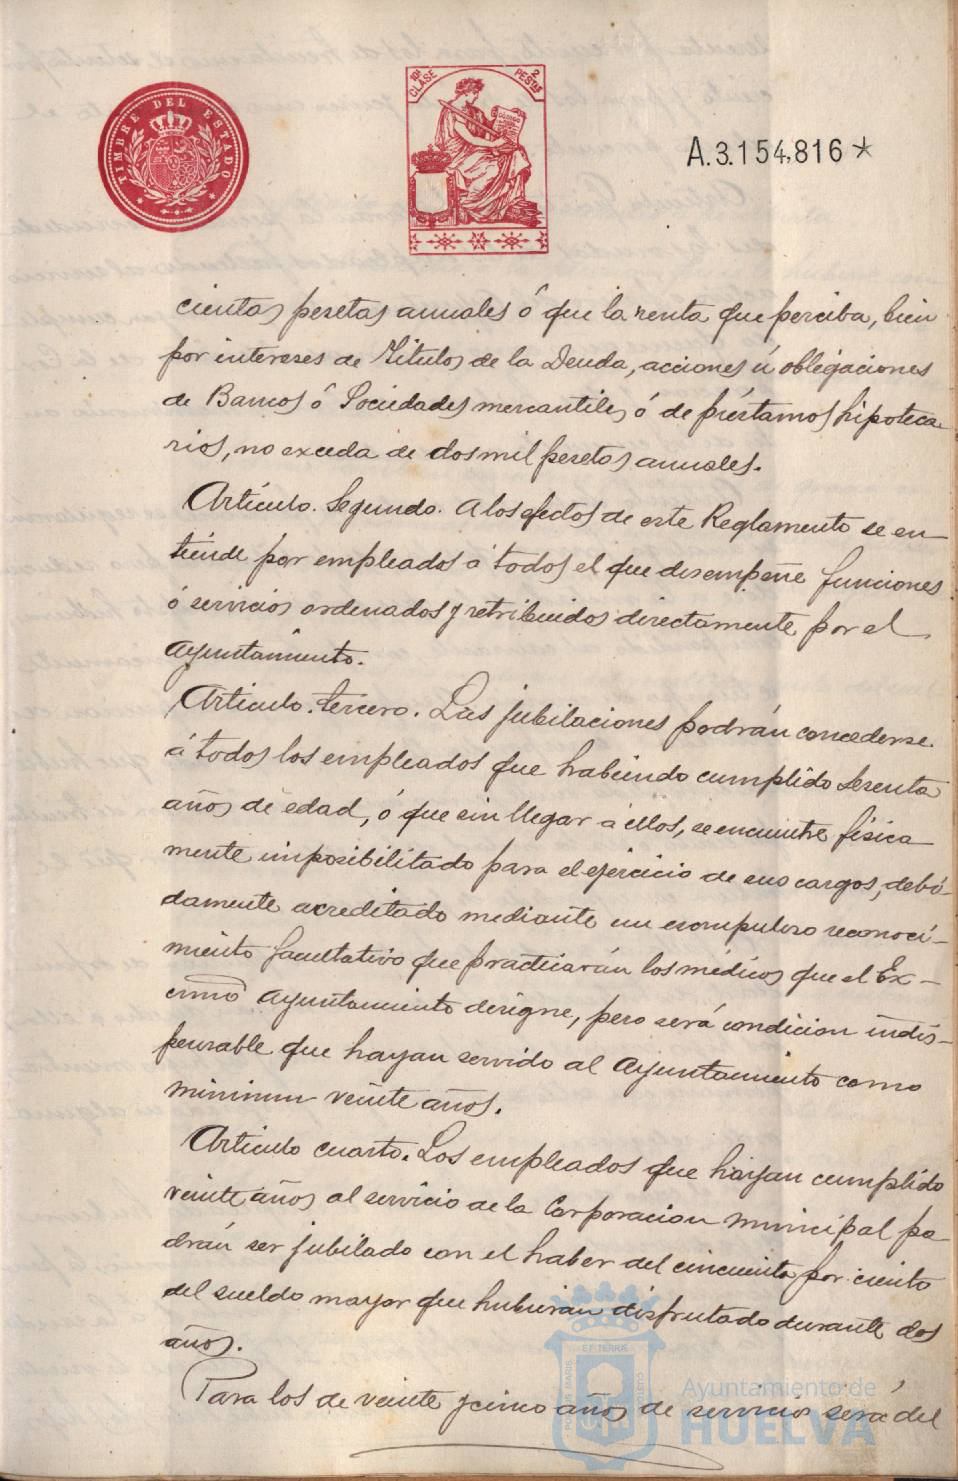 TIMBRE DEL ESTADO
10ª CLASE
2 PESTAS
A.3.154,816*
cientas pesetas anuales ó que la renta que perciba, bien
por intereses de Titulos de la Deuda, acciones ú obligaciones
de Bancos ó Sociedades mercantiles, ó de préstamos hipoteca-
rios, no exceda de dos mil pesetas anuales.
Artículo. Segundo. A los efectos de este Reglamento se en-
tiende por empleados á todos el que desempeñe funciones
ó servicios ordenados y retribuidos directamente por el
Ayuntamiento.
Artículo. tercero. Las jubilaciones podrán concederse
á todos los empleados que habiendo cumplido sesenta
años de edad, ó que sin llegar á ellos, se encuentre física
mente imposibilitado para el ejercicio de sus cargos, debi-
damente acreditado mediante un escrupuloso reconoci-
miento facultativo que practicarán los médicos que el Ex-
cmo Ayuntamiento designe, pero será condicion indis-
pensable que hayan servido al Ayuntamiento como
minimun veinte años.
Artículo cuarto. Los empleados que hayan cumplido
veinte años al servicio de la Corporacion municipal po
drán ser jubilado con el haber del cincuenta por ciento
del sueldo mayor que hubieran disfrutado durante dos
años.
Para los de veinte y cinco años de servicio será del
Ayuntamiento de
HUELVA